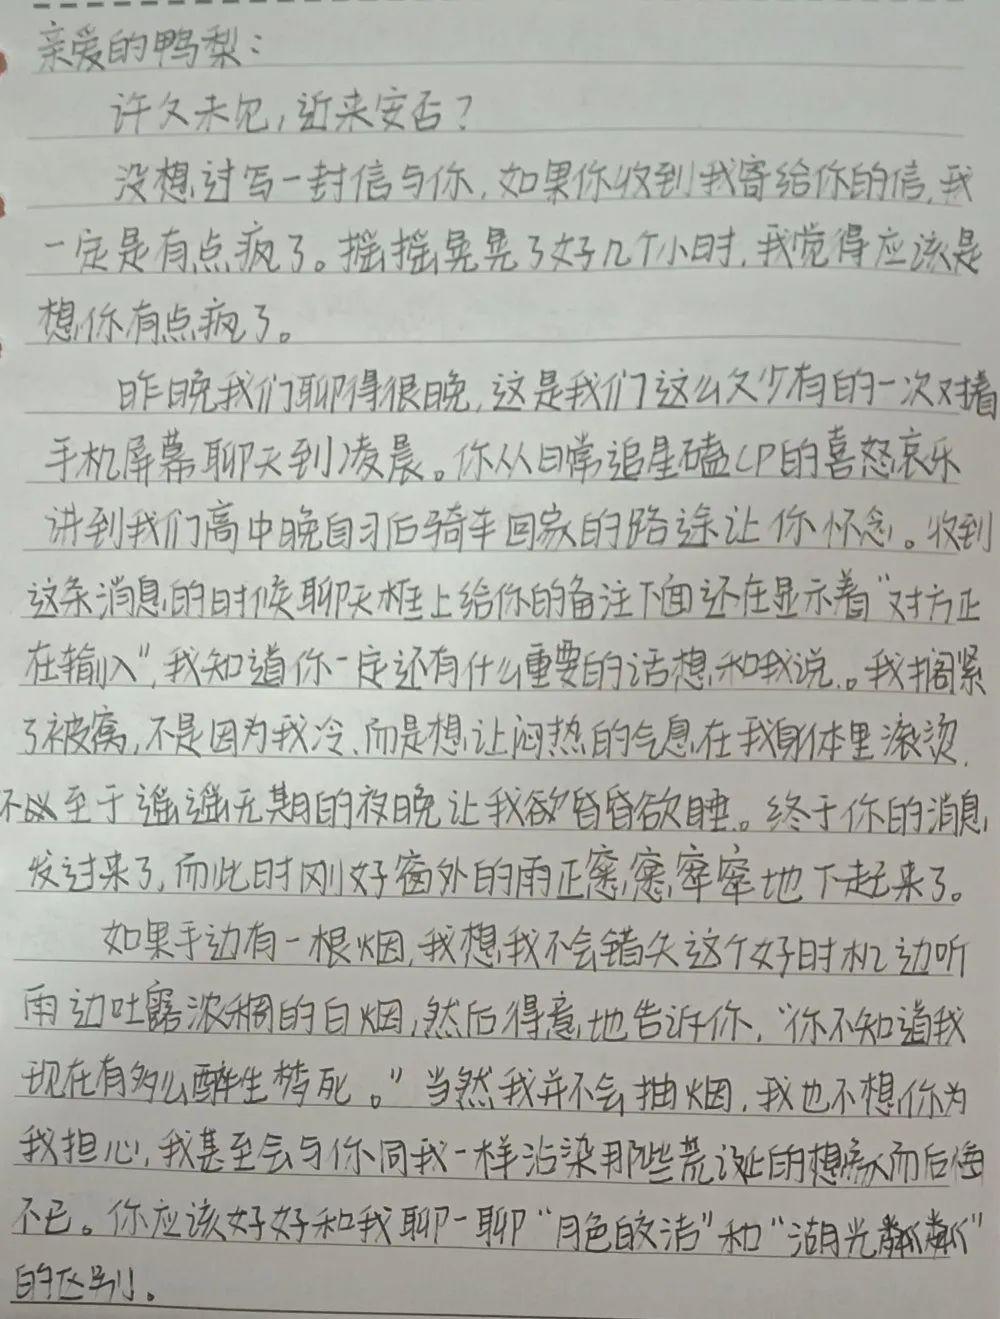 亲爱的鸭梨：
许久未见，近来安否？
没想过写一封信与你，如果你收到我寄给你的信，我
一定是有点疯了。摇摇晃晃了好几个小时，我觉得应该是
想你有点疯了。
昨晚我们聊得很晚，这是我们这么久少有的一次对着
手机屏幕聊天到凌晨。你从日常追星磕CP的喜怒哀乐
讲到我们高中晚自习后骑车回家的路途让你怀念。收到
这条消息的时候聊天框上给你的备注下面还在显示着“对方正
在输入”，我知道你一定还有什么重要的话想和我说。我捂紧
了被窝，不是因为我冷、而是想让闷热的气息在我身体里滚烫，
不以至于遥遥无期的夜晚让我欲昏昏欲睡。终于你的消息
发过来了，而此时刚好窗外的雨正窸窸窣窣地下起来了。
如果手边有一根烟，我想我不会错失这个好时机边听
雨边吐露浓稠的白烟，然后得意地告诉你，“你不知道我
现在有多么醉生梦死。”当然我并不会抽烟，我也不想你为
我担心，我甚至会与你同我一样沾染那些荒诞的想象而后悔
不已。你应该好好和我聊一聊“月色皎洁”和“湖光粼粼”
的区别。